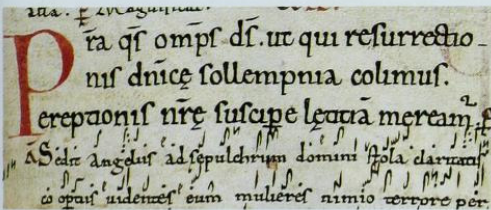 Pr̄a qs om̄ps d̄s. ut qui resurrectio-
nis dn̄icę sollempnia colimus.
ereptionis nr̄ę suscipe lętitiā meream᷑.
Sedit angelus ad sepulchrum domini stola claritatis
coop̄tus uidentes eum mulieres nimio terrore per